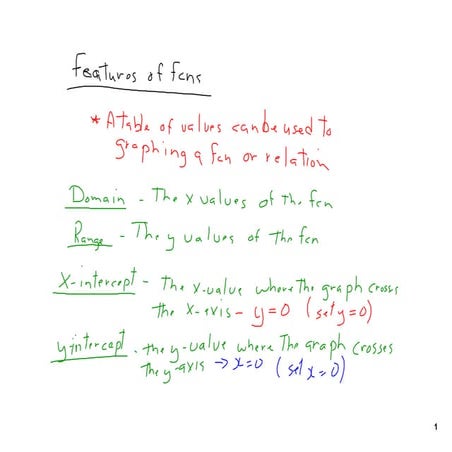 Features of fcns
* A table of values can be used to
graphing a fcn or relation
Domain - The x values of the fcn
Range - The y values of the fcn
X-intercept - The x-value where The graph crosses
the x-axis - y=0 (set y=0)
y intercept - the y-value where The graph crosses
the y-axis → x=0 (set x=0)
1